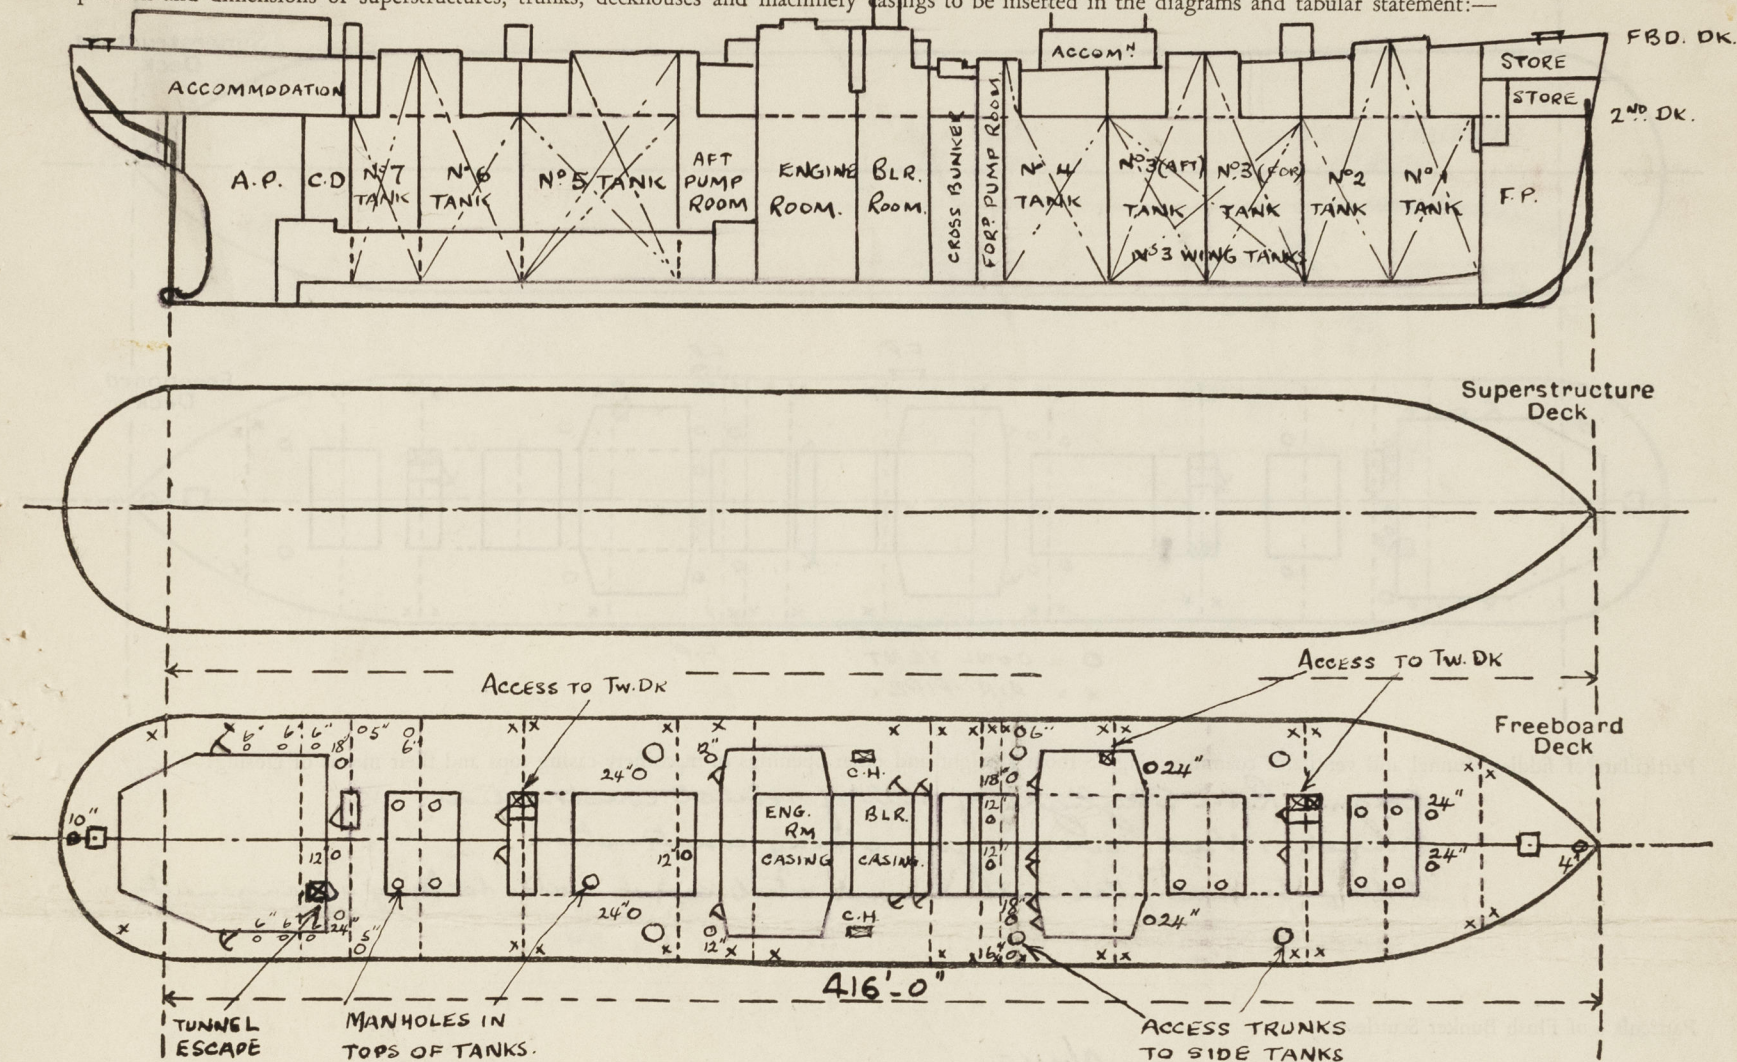 and dimensions of superstructures, trunks, deckhouses and machinery casings to be inserted in the diagrams and tabular statement:—
FBD. DK.
ACCOMN.
STORE
ACCOMMODATION
STORE
2ND. DK.
A.P.
C.D
No 7
TANK
No 6
TANK
No 5 TANK
AFT
PUMP
ROOM
ENGINE
ROOM.
BLR.
ROOM.
CROSS BUNKER
FORD. PUMP ROOM.
No 4
TANK
No 3 (AFT)
TANK
No 3 (FOR)
TANK
No 2
TANK
No 1
TANK
F.P.
NOS 3 WING TANKS
Superstructure
Deck
ACCESS TO TW. DK
ACCESS TO TW. DK
Freeboard
Deck
6" 6" 6" 18" 5" 6"
12"
6"
24"
C.H.
18"
24"
10"
ENG.
RM
CASING
BLR.
CASING.
12"
24"
12"
12"
12"
24"
4"
6" 6" 6" 24" 5"
24"
12"
C.H.
18"
16"
24"
416'-0"
TUNNEL
ESCAPE
MANHOLES IN
TOPS OF TANKS.
ACCESS TRUNKS
TO SIDE TANKS